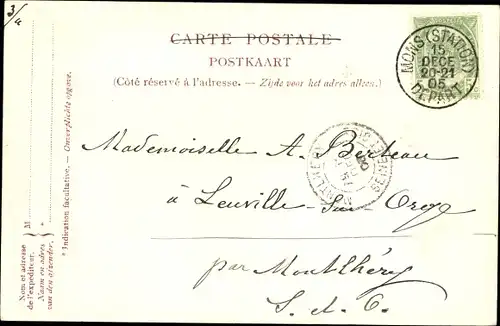 3/4
CARTE POSTALE
POSTKAART
(Côté réservé à l'adresse. — Zijde voor het adres alleen.)
MONS (STATION)
15
DECE
20-21
05
DEPART
Mademoiselle A. Berteau
à Leuville sur Orge
par Montlhéry
S. et O.
MONTLHERY
SEINE ET OISE
* Indication facultative. — Onverplichte opgave.
Nom et adresse
de l'expéditeur.
Naam en adres
van den afzender.
M
*